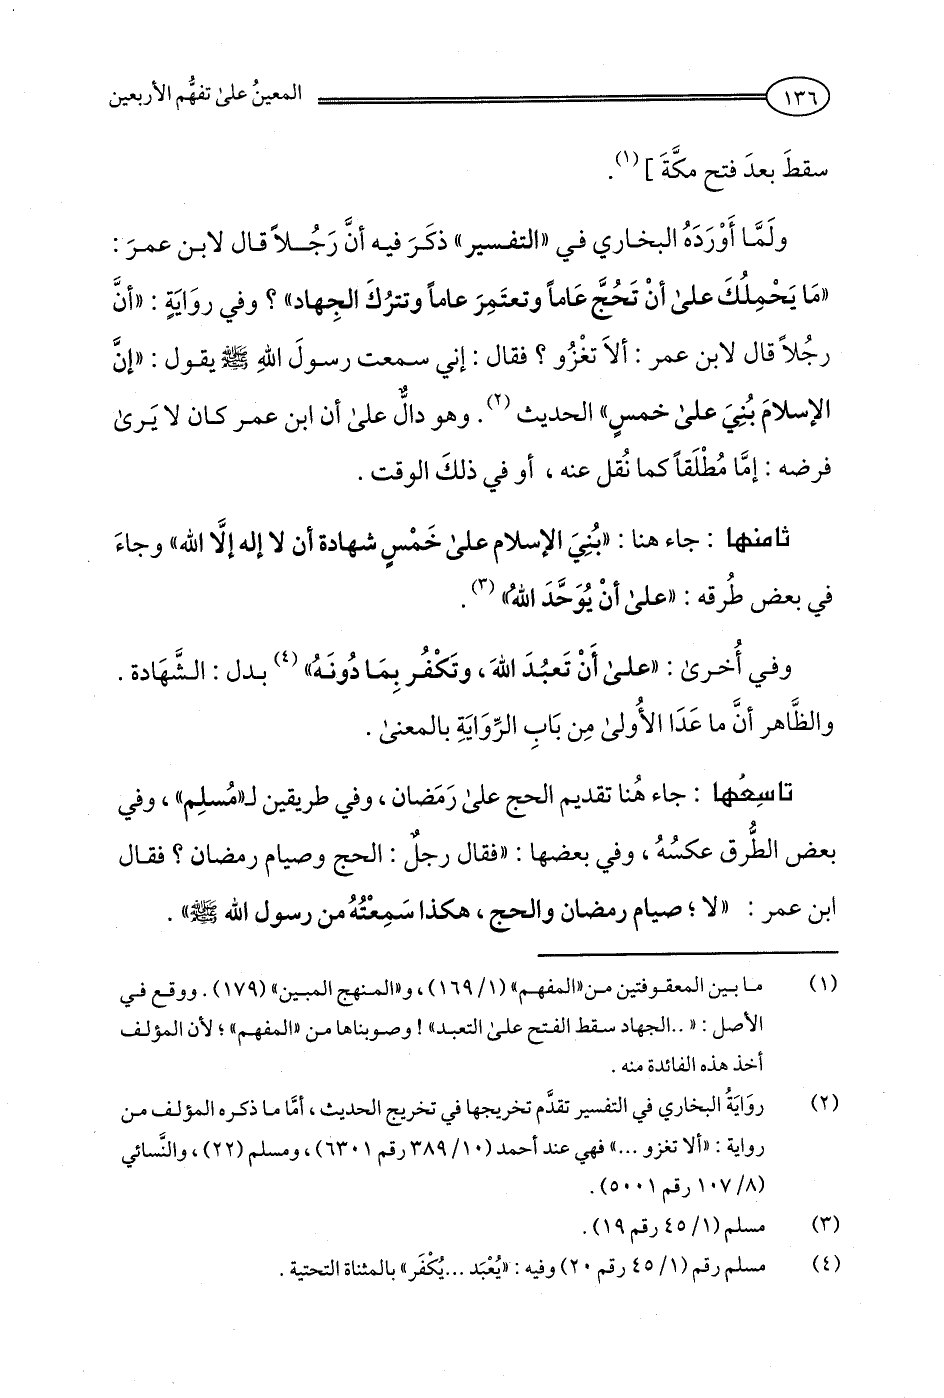 ١٣٦ المعينُ علىٰ تفهُّم الأربعين
سقطَ بعدَ فتح مكَّةَ ] (١).
ولَمَّا أَوْرَدَهُ البخاري في «التفسير» ذكَرَ فيه أنَّ رَجُـلاً قال لابـن عمـرَ :
«مَا يَحْمِلُكَ علىٰ أنْ تَحُجَّ عَاماً وتعتَمِرَ عاماً وتترُكَ الجِهاد» ؟ وفي روَايَةٍ : «أنَّ
رجُلاً قال لابن عمر : ألاَ تغْزُو ؟ فقال : إني سـمعت رسـولَ اللهِ ﷺ يقـول : «إنَّ
الإسلامَ بُنِيَ علىٰ خمسٍ» الحديث (٢). وهو دالٌّ علىٰ أن ابن عمـر كـان لا يَـرىٰ
فرضه : إمَّا مُطْلَقاً كما نُقل عنه ، أو في ذلكَ الوقت .
ثامنها : جاء هنا : «بُنِيَ الإسلام علىٰ خَمْسٍ شهادة أن لا إله إلَّا الله» وجاءَ
في بعض طُرقه : «علىٰ أنْ يُوَحَّدَ اللهُ» (٣).
وفـي أُخـرىٰ : «علـىٰ أَنْ تَعبُـدَ اللهَ ، وتَكْفُـر بِمَـا دُونَـهُ» (٤) بـدل : الـشَّهَادة .
والظَّاهر أنَّ ما عَدَا الأُولىٰ مِن بَابِ الرِّوَايَةِ بالمعنىٰ .
تاسِعُها : جاء هُنا تقديم الحج علىٰ رَمَضان ، وفي طريقين لـ«مُسلِم» ، وفي
بعض الطُّرق عكسُهُ ، وفي بعضها : «فقال رجلٌ : الحج وصيام رمضان ؟ فقال
ابن عمر : «لا ؛ صيام رمضان والحج ، هكذا سَمِعْتُهُ من رسول الله ﷺ» .
(١) ما بين المعقوفتين من «المفهم» (١/ ١٦٩) ، و«المنهج المبين» (١٧٩) . ووقع في
الأصل : «..الجهاد سقط الفتح علىٰ التعبد» ! وصوبناها من «المفهم» ؛ لأن المؤلف
أخذ هذه الفائدة منه .
(٢) روَايَةُ البخاري في التفسير تقدَّم تخريجها في تخريج الحديث ، أمَّا ما ذكره المؤلف من
رواية : «ألا تغزو ...» فهي عند أحمد (١٠/ ٣٨٩ رقم ٦٣٠١) ، ومسلم (٢٢) ، والنَّسائي
(٨/ ١٠٧ رقم ٥٠٠١) .
(٣) مسلم (١/ ٤٥ رقم ١٩) .
(٤) مسلم رقم (١/ ٤٥ رقم ٢٠) وفيه : «يُعْبَد ...يُكْفَر» بالمثناة التحتية .